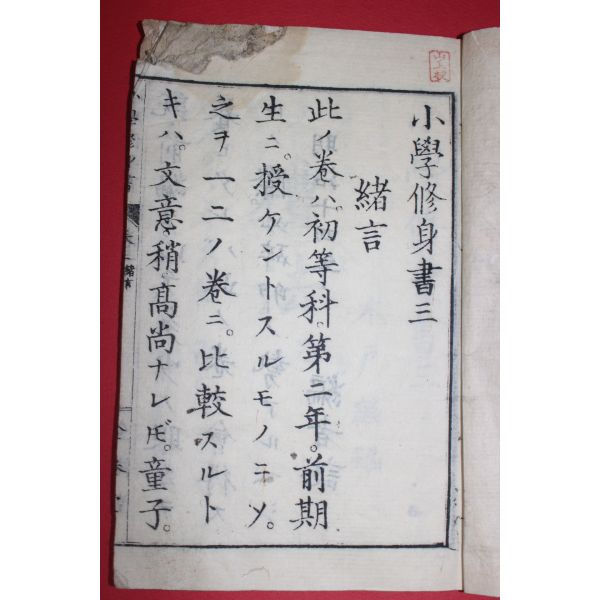 小學修身書三
緒言
此ノ卷ハ。初等科。第二年。前期
生ニ。授ケントスルモノニソ。
之ヲ一二ノ卷ニ。比較スルト
キハ。文意稍。高尚ナレ𪜈。童子。